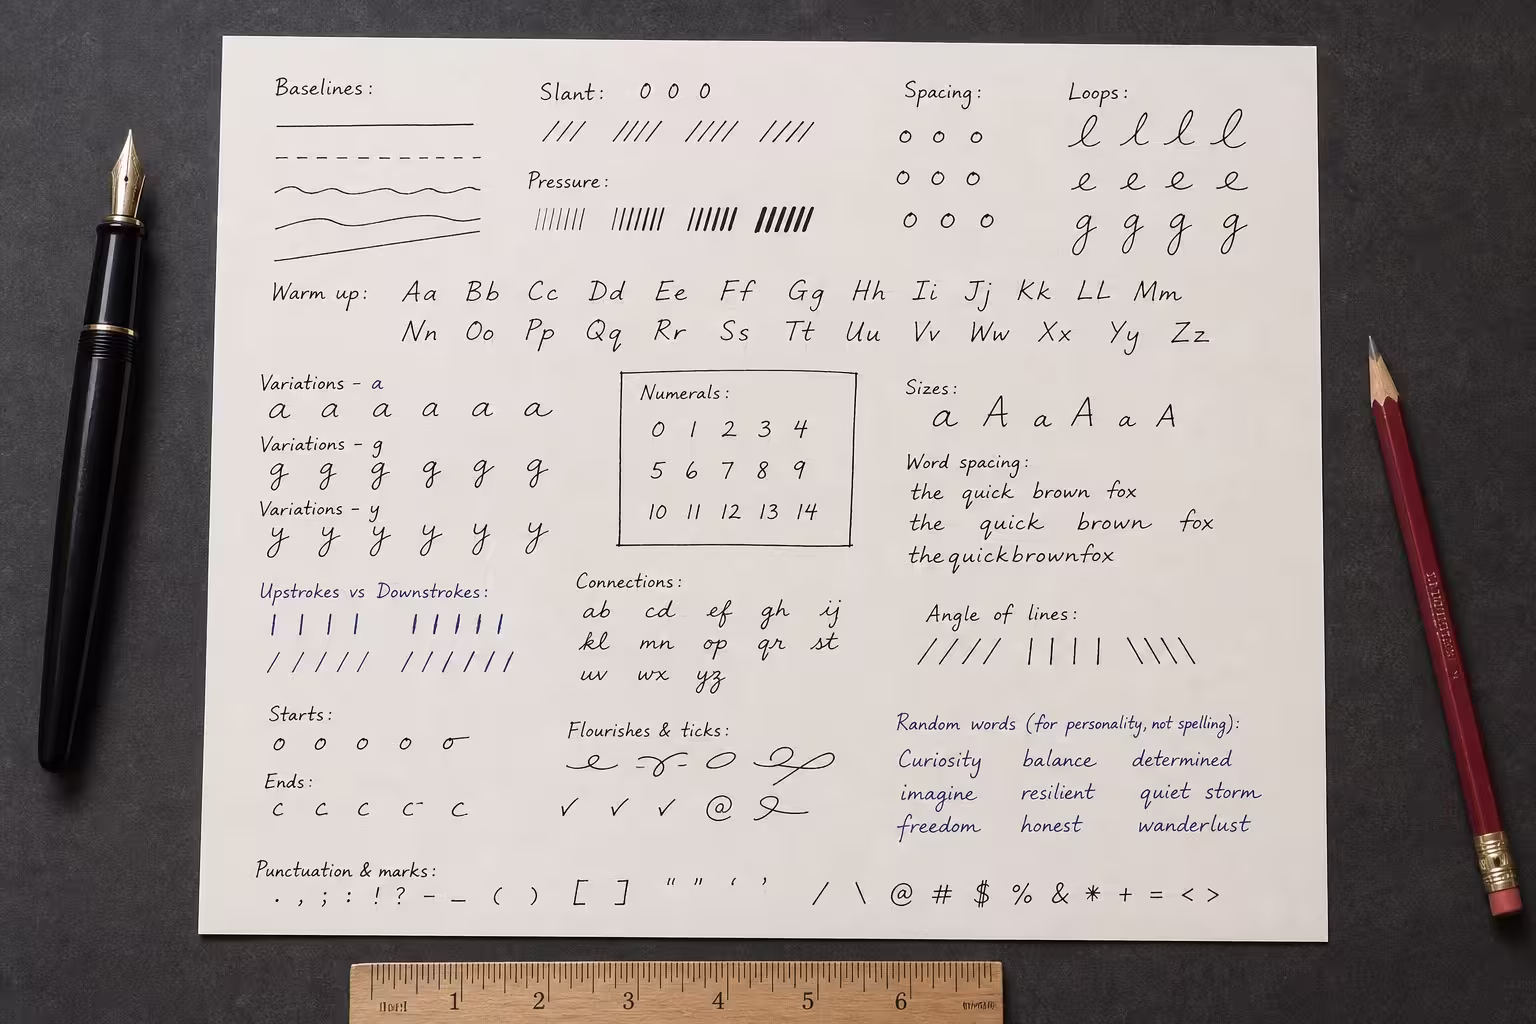 Baselines:
Slant: 0 0 0
/// //// //// ////
Pressure:
Spacing:
o o o
o o o
o o o
Loops:
l l l l
e e e e
g g g g
Warm up: Aa Bb Cc Dd Ee Ff Gg Hh Ii Jj Kk LL Mm
Nn Oo Pp Qq Rr Ss Tt Uu Vv Ww Xx Yy Zz
Variations - a
a a a a a a
Variations - g
g g g g g g
Variations - y
y y y y y y
Numerals:
0 1 2 3 4
5 6 7 8 9
10 11 12 13 14
Sizes:
a A a A a A
Word spacing:
the quick brown fox
the quick brown fox
thequickbrownfox
Upstrokes vs Downstrokes:
| | | | | | | | |
/ / / / / / / / / / /
Connections:
ab cd ef gh ij
kl mn op qr st
uv wx yz
Angle of lines:
//// |||| \\\\
Starts:
o o o o o
Ends:
c c c c c
Flourishes & ticks:
✓ ✓ ✓ @
Random words (for personality, not spelling):
Curiosity balance determined
imagine resilient quiet storm
freedom honest wanderlust
Punctuation & marks:
. , ; : ! ? - _ ( ) [ ] " " ‘ ’ / \ @ # $ % & * + = < >
1 2 3 4 5 6